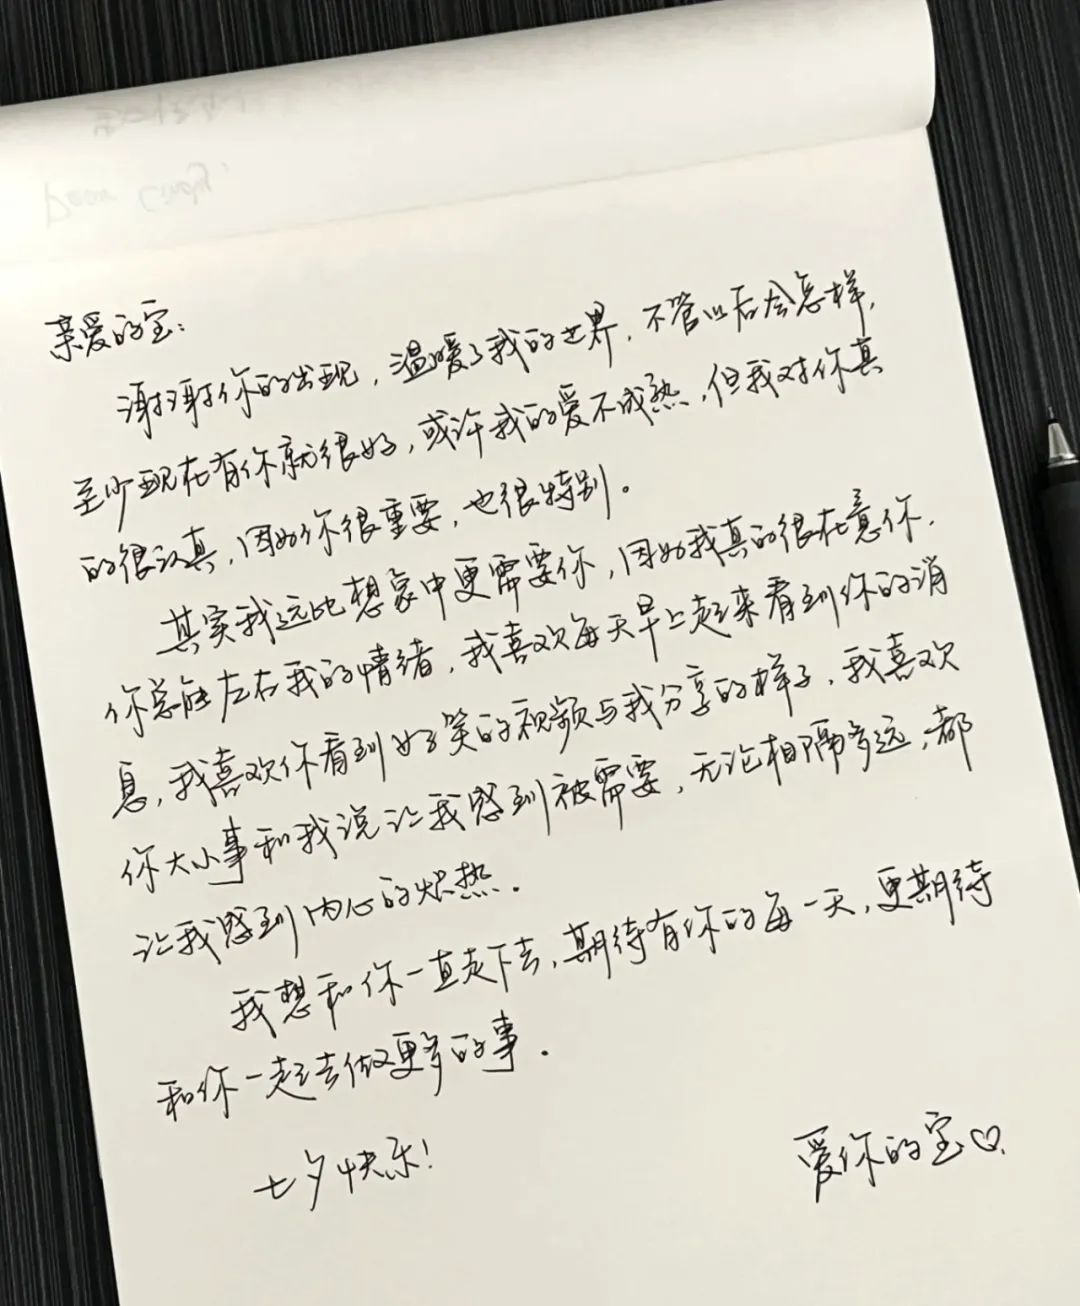 Dear Cindy:
亲爱的宝：
谢谢你的出现，温暖了我的世界，不管以后会怎样，
至少现在有你就很好，或许我的爱不成熟，但我对你真
的很认真，因为你很重要，也很特别。
其实我远比想象中更需要你，因为我真的很在意你，
你总能左右我的情绪，我喜欢每天早上起来看到你的消
息，我喜欢你看到好笑的视频与我分享的样子，我喜欢
你大小事和我说让我感到被需要，无论相隔多远，都
让我感到内心的炽热．
我想和你一直走下去，期待有你的每一天，更期待
和你一起去做更多的事．
七夕快乐！
爱你的宝♡．